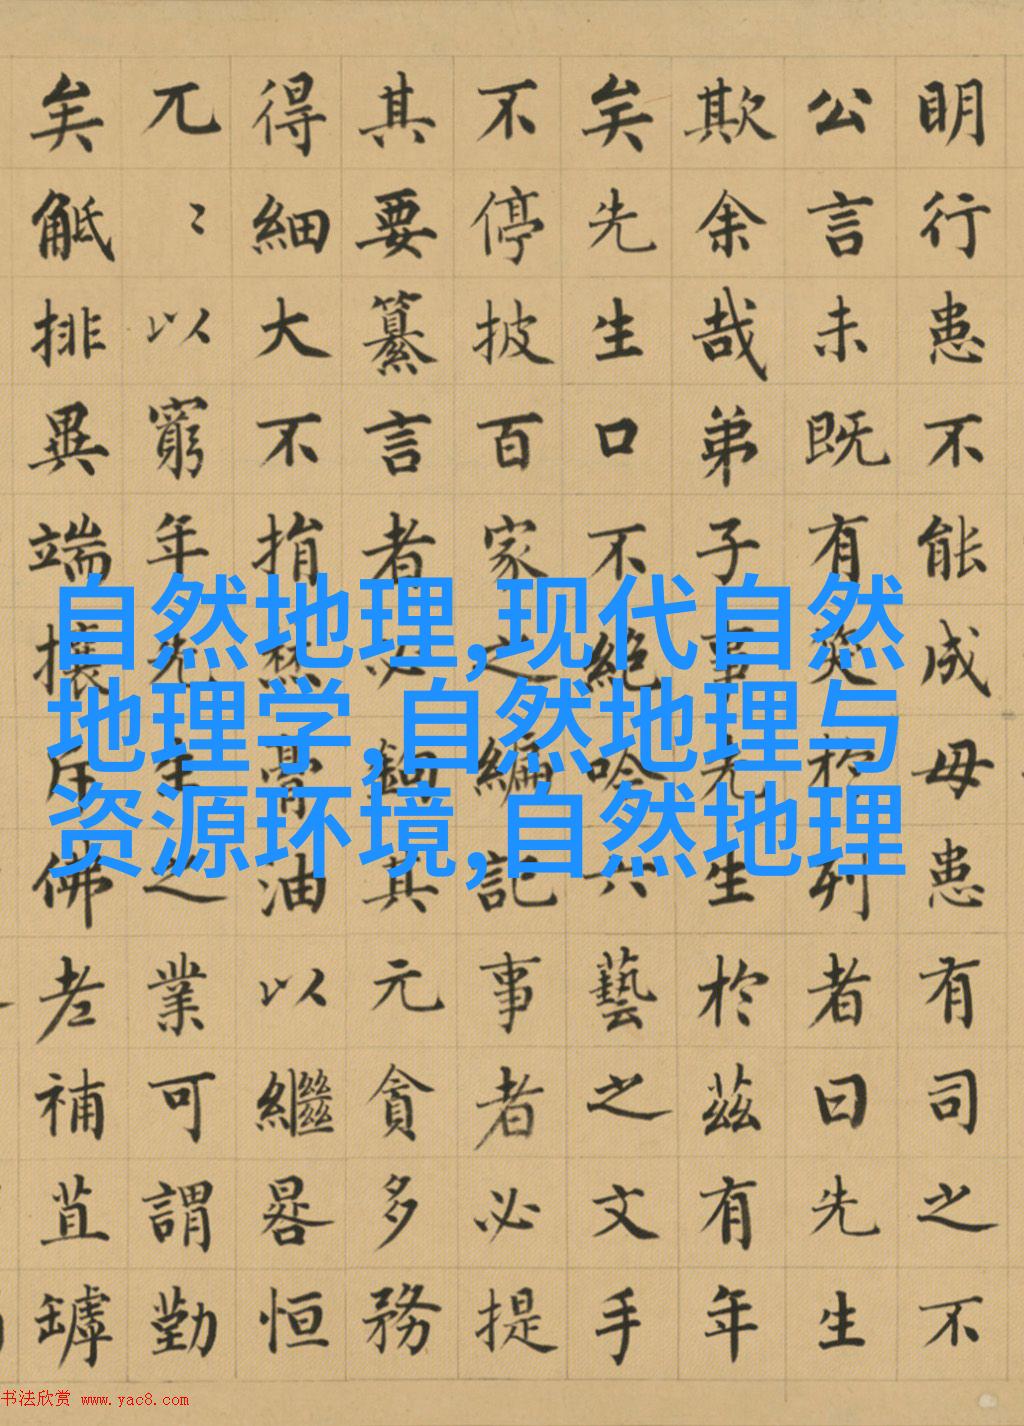 明行患不能成毋患有司之不
公言未既有笑於列者曰先生
欺余哉弟子事先生於茲有年
矣先生口不絕吟六藝之文手
不停披百家之編記事者必提
其要纂言者必鉤其元貪多務
得細大不捐焚膏油以繼晷恒
兀〻以窮年先生之業可謂勤
矣觝排異端攘斥佛老補苴罅
自然地理,现代自然
地理学,自然地理与
资源环境,自然地理
书法欣赏 www.yac8.com